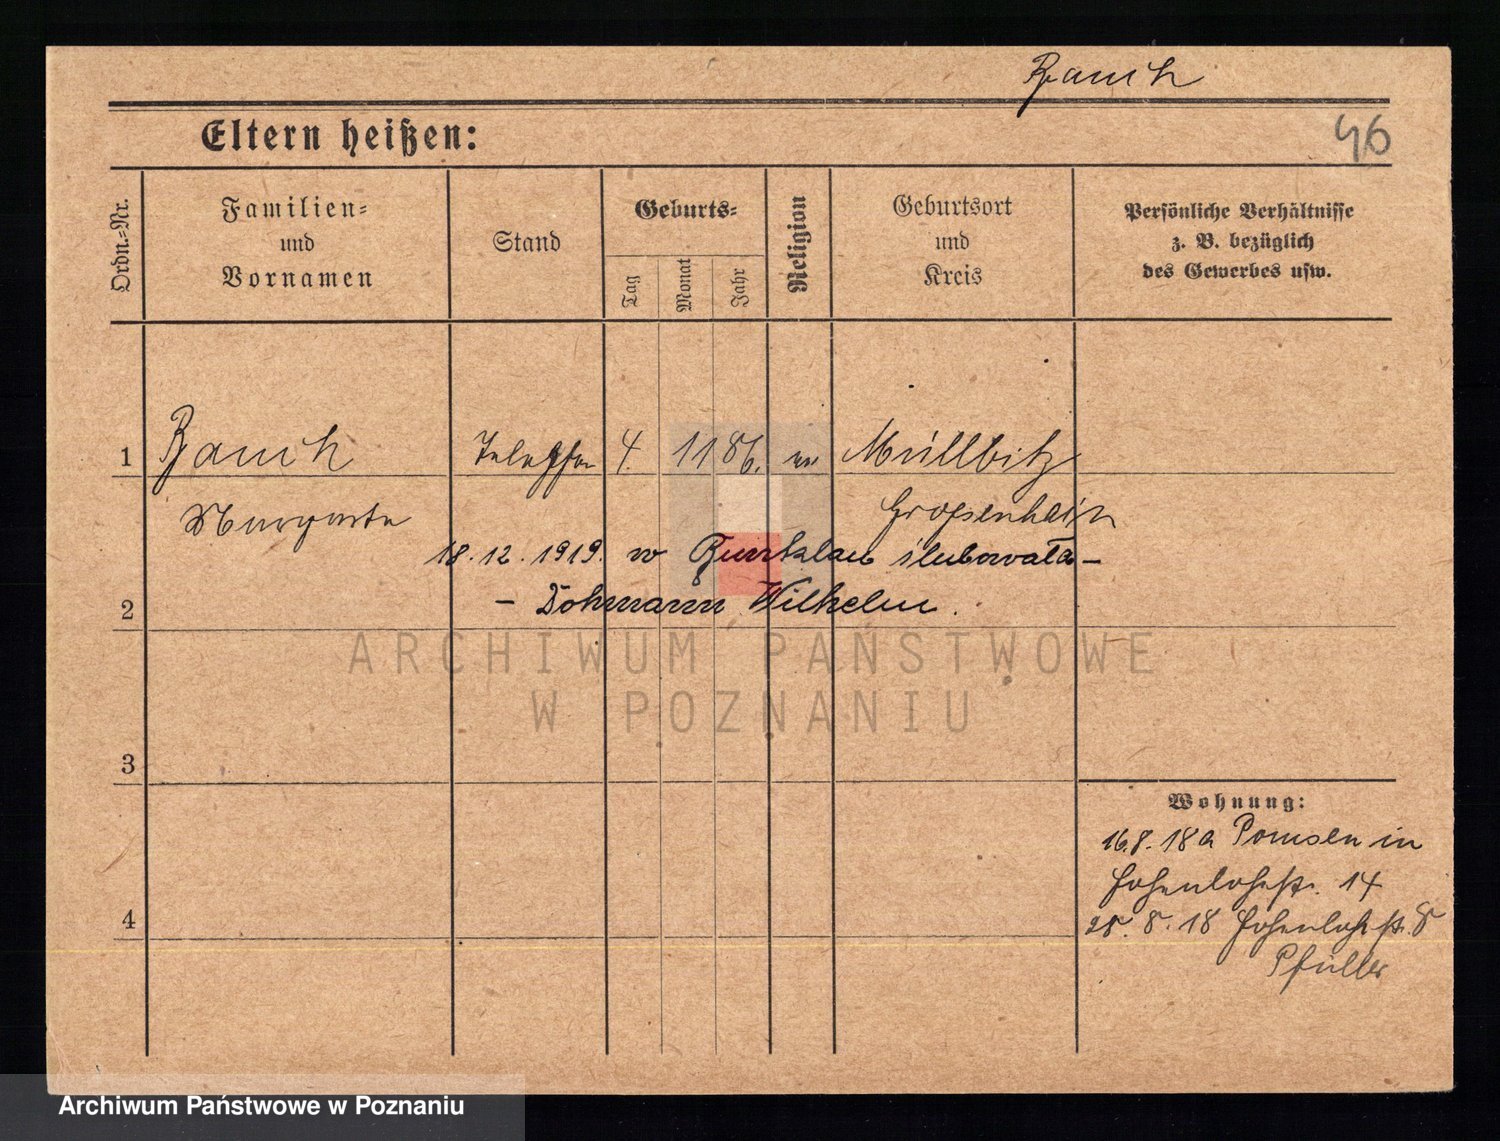 Rauch
Eltern heißen:
46
Ordn.=Nr.
Familien=
und
Vornamen
Stand
Geburts=
Tag
Monat
Jahr
Religion
Geburtsort
und
Kreis
Persönliche Verhältnisse
z. B. bezüglich
des Gewerbes usw.
1 Rauch 4. 11 86. Müllbitz
Großenhain
18.12.1919. w Bunzlau ślubowała –
– Dohmann Wilhelm.
2
ARCHIWUM PAŃSTWOWE
W POZNANIU
3
Wohnung:
16.8.18 a Pomsen in
Hohenlohestr. 14
4
25.8.18 Hohenlohestr. 8
Pfüller
Archiwum Państwowe w Poznaniu